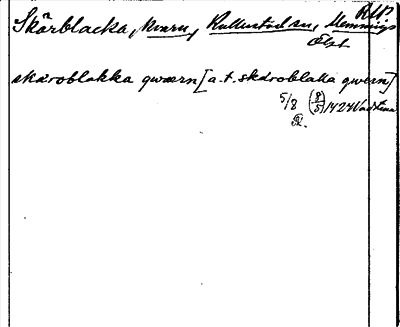 RAP.
Skärblacka, kvarn, Kullerstad sn, Memmings
Ögt
skæroblakka qwærn [a.t. skæroblaka qwern]
5/8 (8/5) 1424 Vadstena